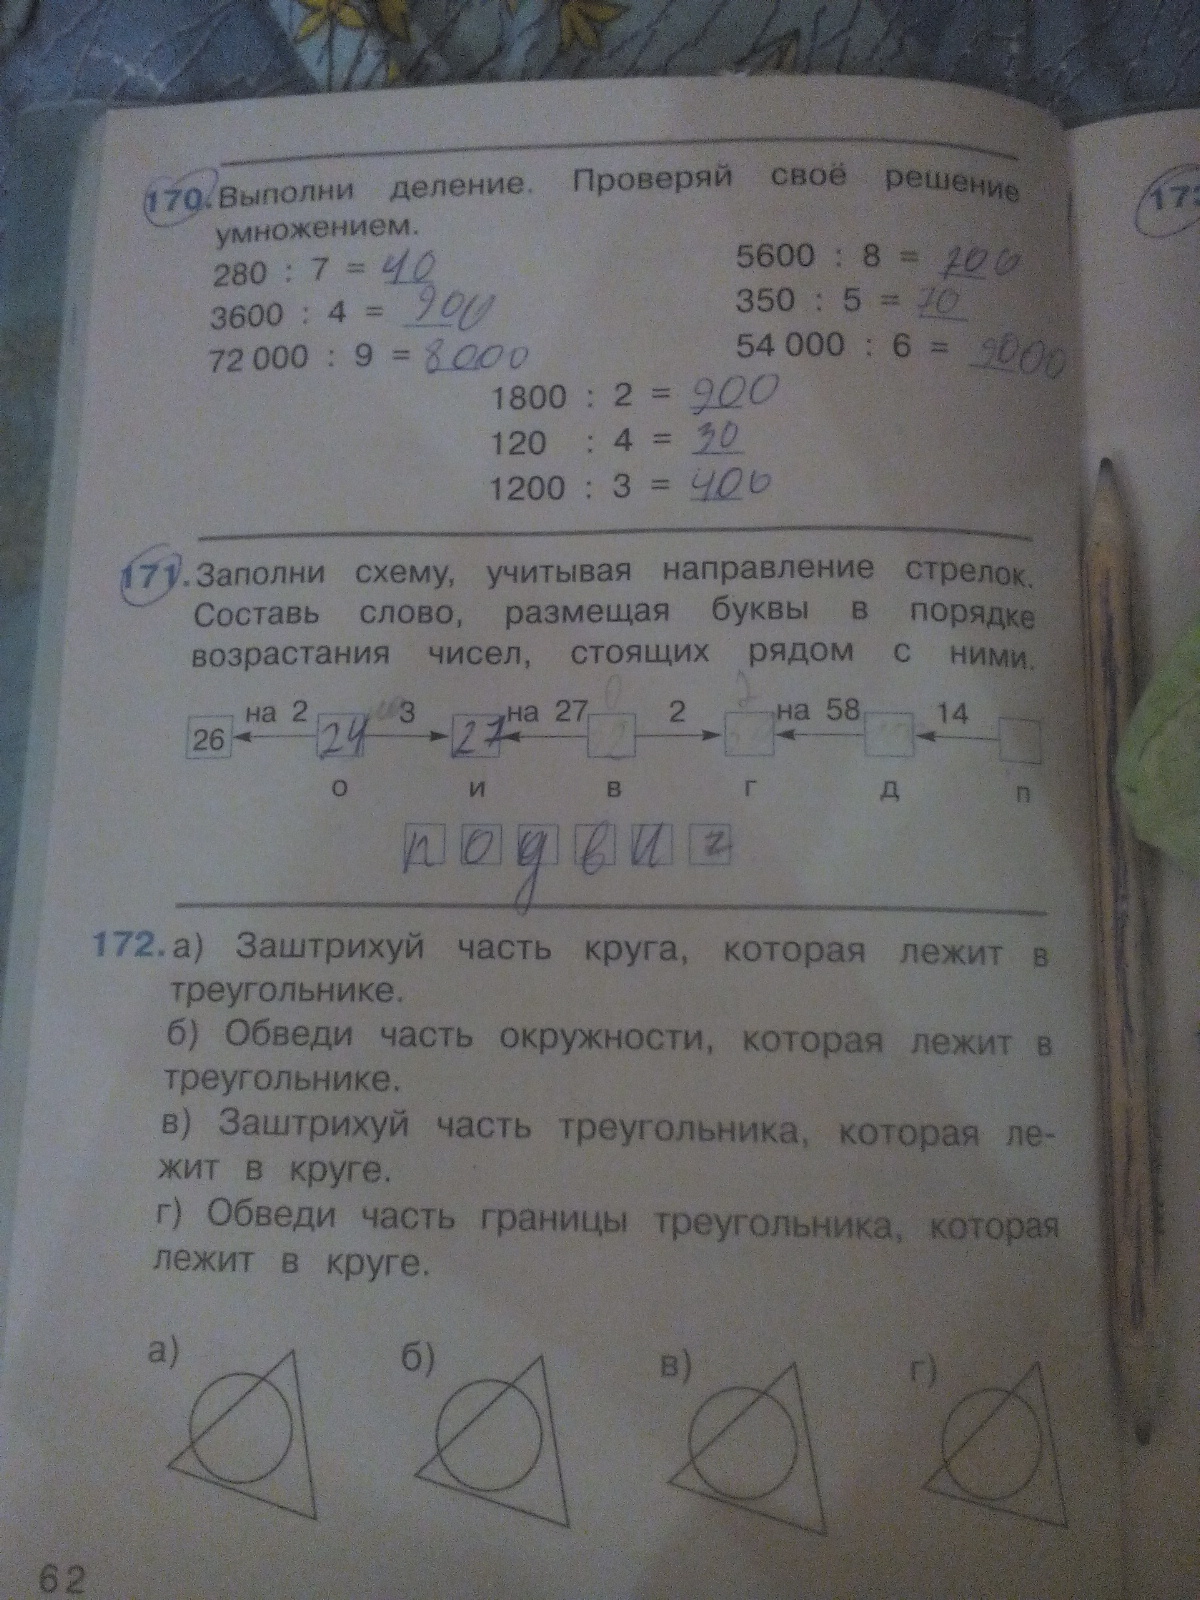 170. Выполни деление. Проверяй своё решение
умножением.
280 : 7 = 40
5600 : 8 = 700
3600 : 4 = 900
350 : 5 = 70
72 000 : 9 = 8000
54 000 : 6 = 9000
1800 : 2 = 900
120 : 4 = 30
1200 : 3 = 400
171. Заполни схему, учитывая направление стрелок.
Составь слово, размещая буквы в порядке
возрастания чисел, стоящих рядом с ними.
на 2 3 на 27 2 на 58 14
26 24 27
о и в г д п
п о д в и г
172. а) Заштрихуй часть круга, которая лежит в
треугольнике.
б) Обведи часть окружности, которая лежит в
треугольнике.
в) Заштрихуй часть треугольника, которая ле-
жит в круге.
г) Обведи часть границы треугольника, которая
лежит в круге.
а) б) в) г)
62